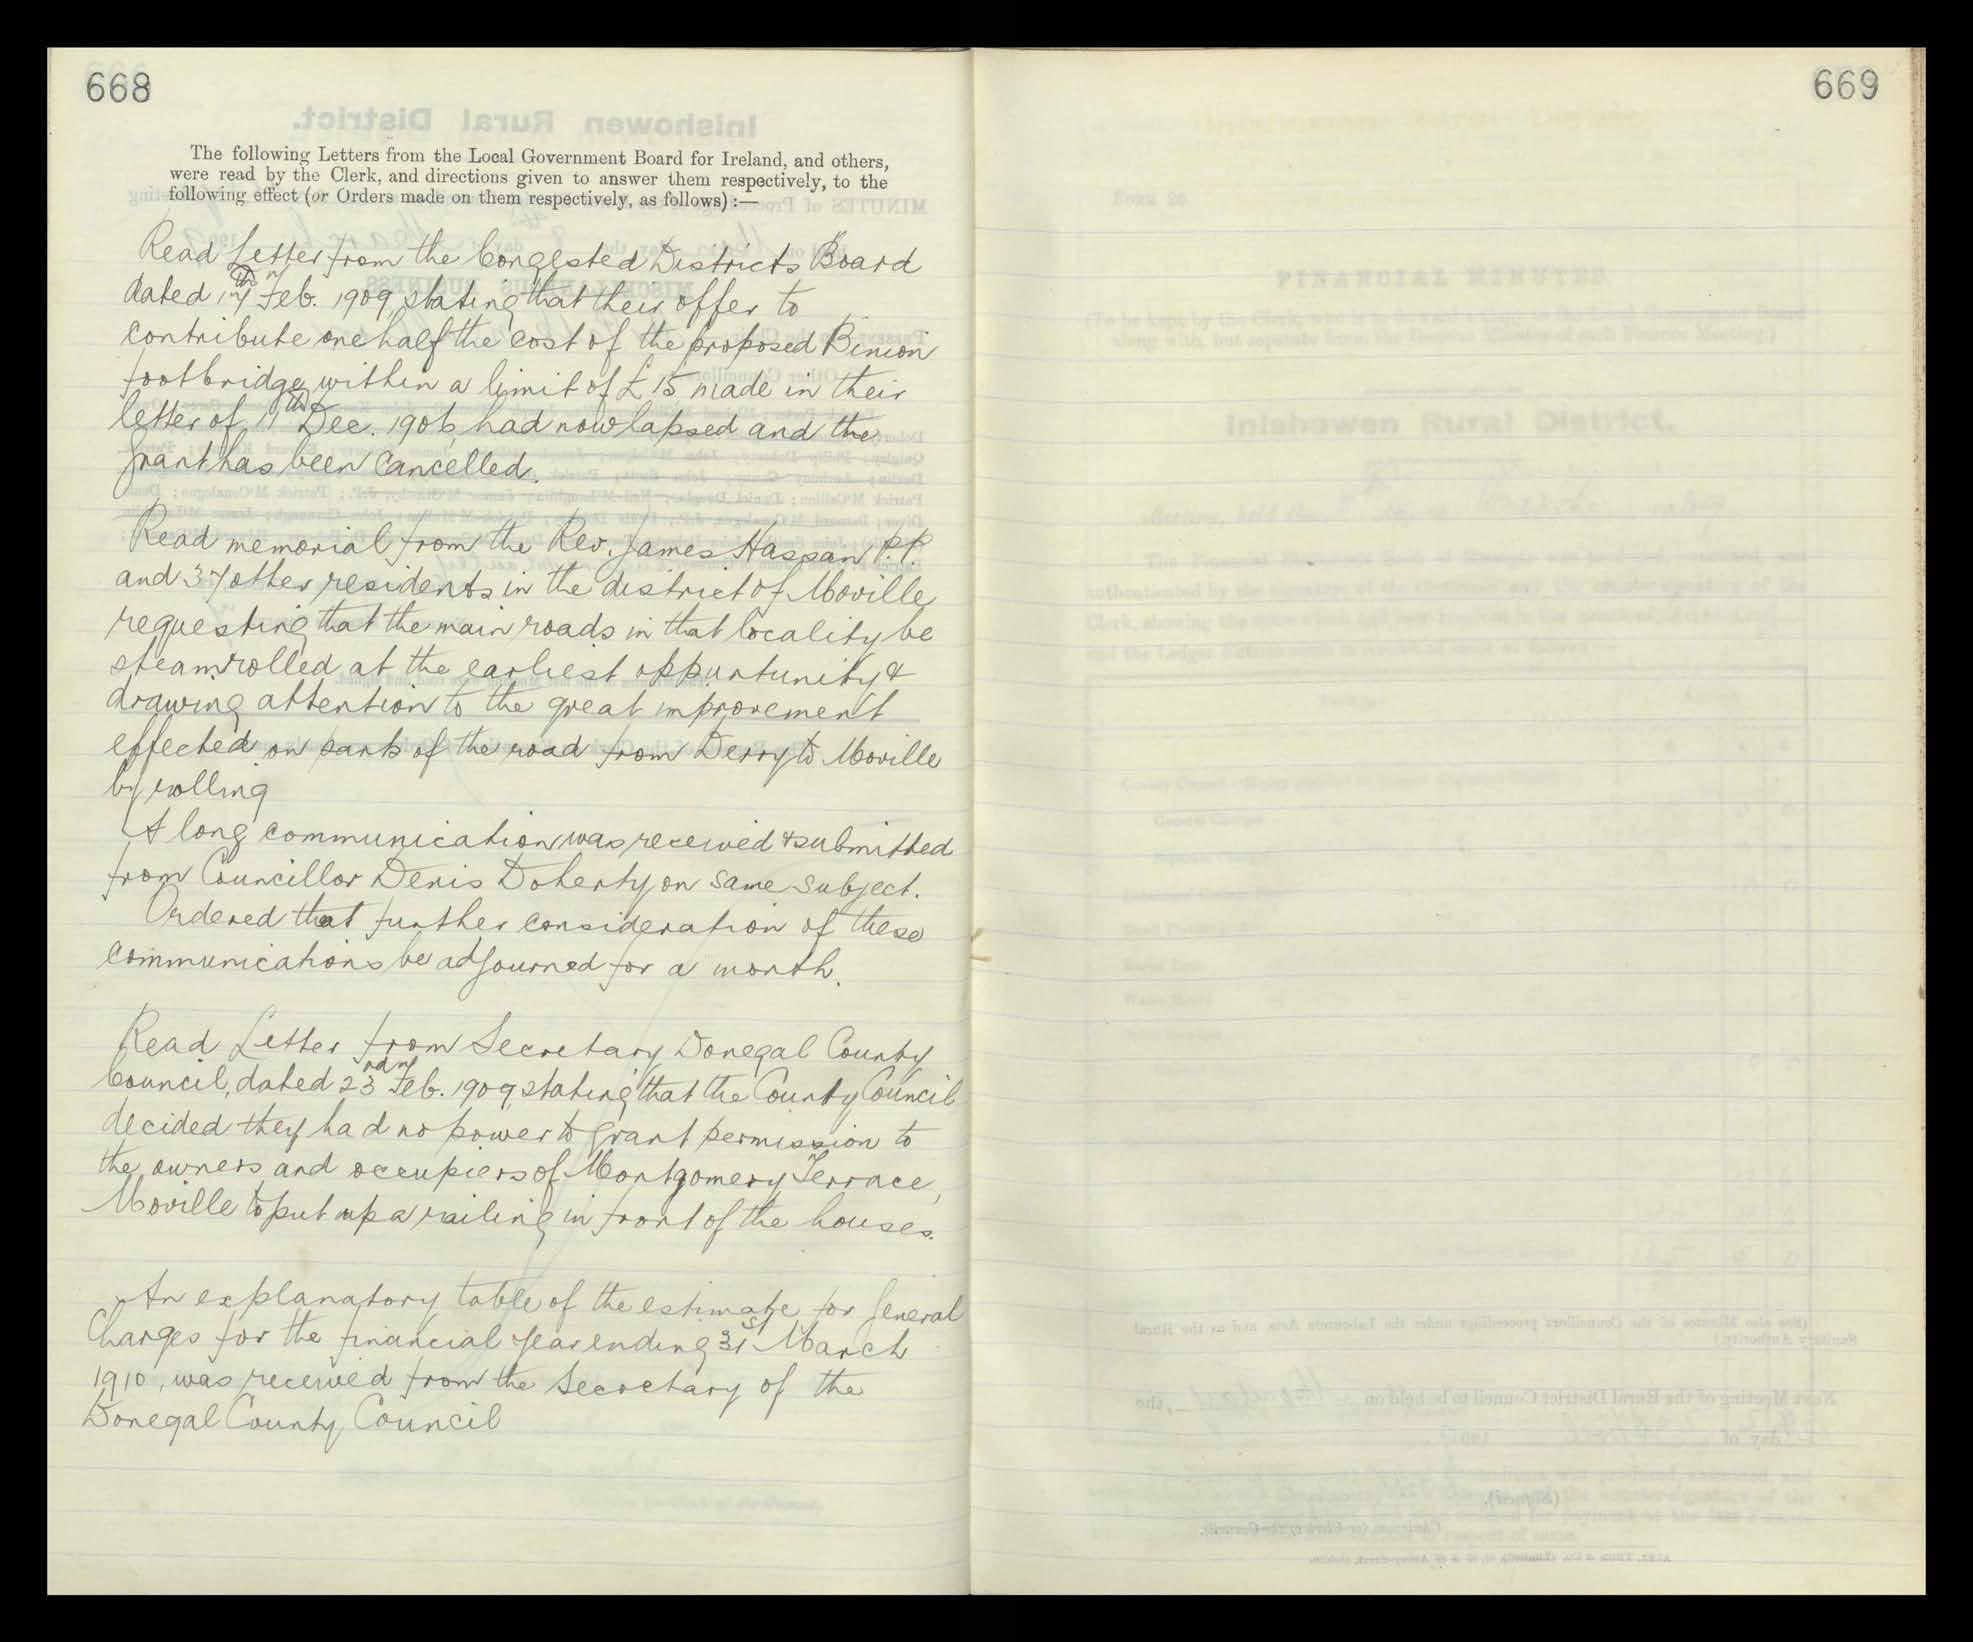 668
The following Letters from the Local Government Board for Ireland, and others,
were read by the Clerk, and directions given to answer them respectively, to the
following effect (or Orders made on them respectively, as follows) :—
Read Letter from the Congested Districts Board
dated 17th Feb. 1909, stating that their offer to
contribute one half the cost of the proposed Binion
footbridge, within a limit of £15 made in their
letter of 11th Dec. 1906, had now lapsed and the
grant has been cancelled.
Read memorial from the Rev. James Hassan P.P.
and 37 other residents in the district of Moville
requesting that the main roads in that locality be
steamrolled at the earliest oppurtunity &
drawing attention to the great improvement
effected on parts of the road from Derry to Moville
by rolling
A long communication was received & submitted
from Councillor Denis Doherty on same subject.
Ordered that further consideration of these
communications be adjourned for a month.
Read Letter from Secretary Donegal County
Council, dated 23rd Feb. 1909, stating that the County Council
decided they had no power to grant permission to
the owners and occupiers of Montgomery Terrace,
Moville to put up a railing in front of the houses.
An explanatory table of the estimate for General
Charges for the financial year ending 31st March
1910, was received from the Secretary of the
Donegal County Council
669
FORM 26
FINANCIAL MINUTES
Inishowen Rural District.